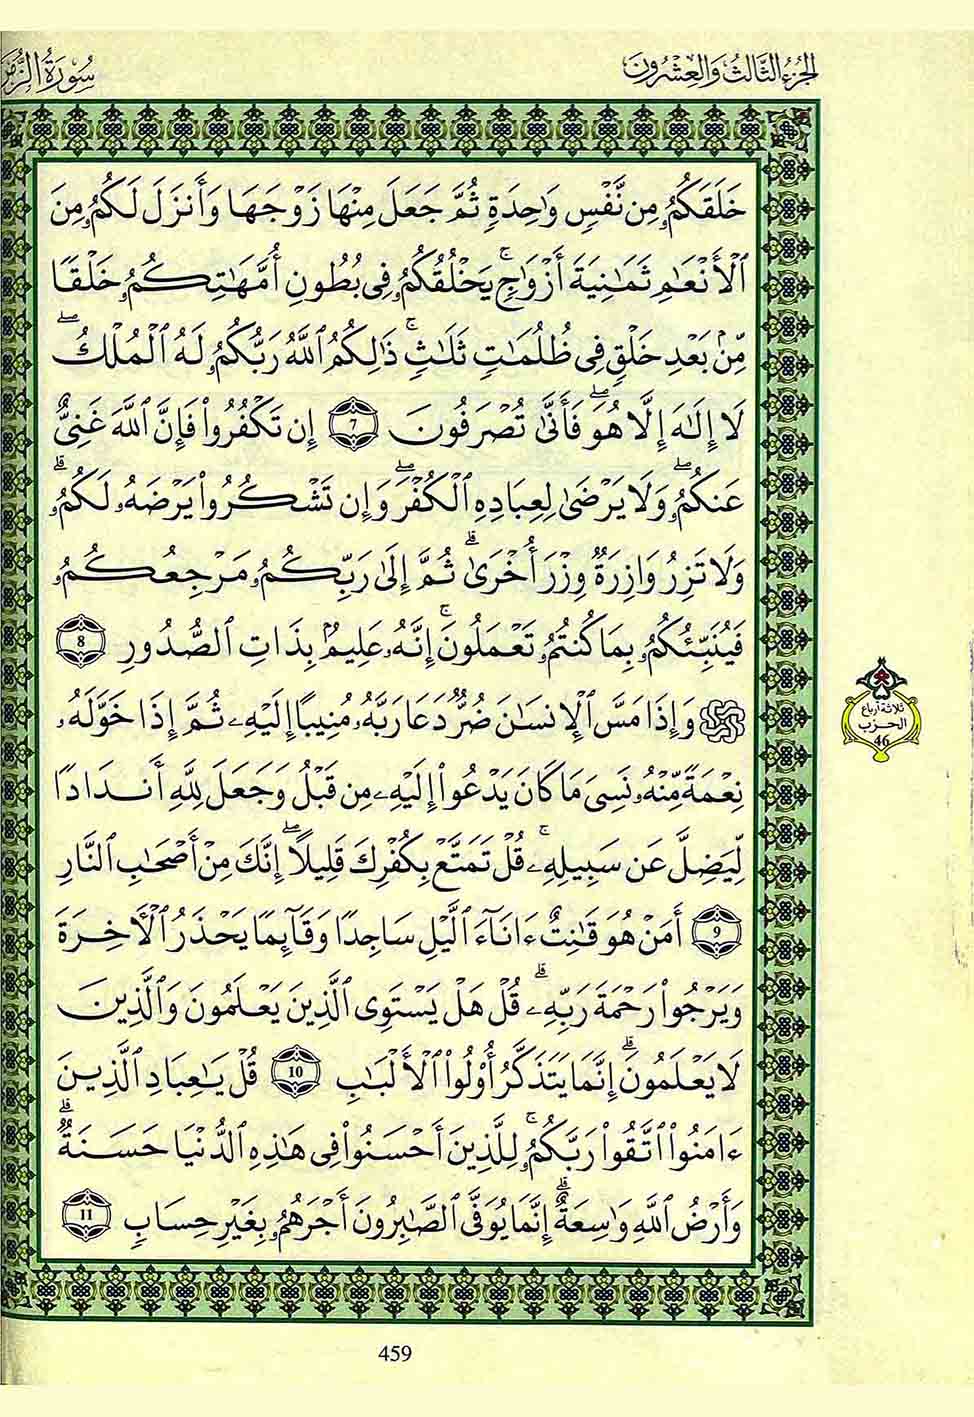 الجزء الثالث والعشرون
سورة الزمر
خَلَقَكُمُۥ مِن نَّفْسٍ وَٰحِدَةٍ ثُمَّ جَعَلَ مِنْهَا زَوْجَهَا وَأَنزَلَ لَكُمُۥ مِنَ
ٱلْأَنْعَٰمِ ثَمَٰنِيَةَ أَزْوَٰجٍۚ يَخْلُقُكُمُۥ فِى بُطُونِ أُمَّهَٰتِكُمُۥ خَلْقًا
مِّنۢ بَعْدِ خَلْقٍ فِى ظُلُمَٰتٍ ثَلَٰثٍۚ ذَٰلِكُمُ ٱللَّهُ رَبُّكُمُۥ لَهُ ٱلْمُلْكُۖ
لَا إِلَٰهَ إِلَّا هُوَۖ فَأَنَّىٰ تُصْرَفُونَ 7 إِن تَكْفُرُوا۟ فَإِنَّ ٱللَّهَ غَنِىٌّ
عَنكُمُۥۖ وَلَا يَرْضَىٰ لِعِبَادِهِ ٱلْكُفْرَۖ وَإِن تَشْكُرُوا۟ يَرْضَهُۥ لَكُمُۥۗ
وَلَا تَزِرُ وَازِرَةٌ وِزْرَ أُخْرَىٰۗ ثُمَّ إِلَىٰ رَبِّكُمُۥ مَرْجِعُكُمُۥ
فَيُنَبِّئُكُمُۥ بِمَا كُنتُمُۥ تَعْمَلُونَۚ إِنَّهُۥ عَلِيمٌۢ بِذَاتِ ٱلصُّدُورِ 8
۞ وَإِذَا مَسَّ ٱلْإِنسَٰنَ ضُرٌّ دَعَا رَبَّهُۥ مُنِيبًا إِلَيْهِۦ ثُمَّ إِذَا خَوَّلَهُۥ
نِعْمَةً مِّنْهُۥ نَسِىَ مَا كَانَ يَدْعُوا۟ إِلَيْهِۦ مِن قَبْلُ وَجَعَلَ لِلَّهِ أَندَادًا
لِّيَضِلَّ عَن سَبِيلِهِۦۚ قُلْ تَمَتَّعْ بِكُفْرِكَ قَلِيلًاۖ إِنَّكَ مِنْ أَصْحَٰبِ ٱلنَّارِ
9 أَمَنْ هُوَ قَٰنِتٌ ءَانَآءَ ٱلَّيْلِ سَاجِدًا وَقَآئِمًا يَحْذَرُ ٱلْأَخِرَةَ
وَيَرْجُوا۟ رَحْمَةَ رَبِّهِۦۗ قُلْ هَلْ يَسْتَوِى ٱلَّذِينَ يَعْلَمُونَ وَٱلَّذِينَ
لَا يَعْلَمُونَۗ إِنَّمَا يَتَذَكَّرُ أُو۟لُوا۟ ٱلْأَلْبَٰبِ 10 قُلْ يَٰعِبَادِ ٱلَّذِينَ
ءَامَنُوا۟ ٱتَّقُوا۟ رَبَّكُمُۥۚ لِلَّذِينَ أَحْسَنُوا۟ فِى هَٰذِهِ ٱلدُّنْيَا حَسَنَةٌۗ
وَأَرْضُ ٱللَّهِ وَٰسِعَةٌۗ إِنَّمَا يُوَفَّى ٱلصَّٰبِرُونَ أَجْرَهُمُۥ بِغَيْرِ حِسَابٍ 11
ثلاثة أرباع
الحزب
46
459